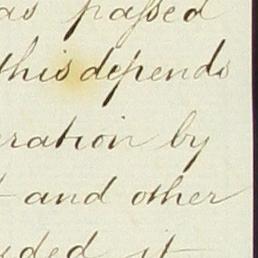 as paſsed
this depends
eration by
t and other
ded it